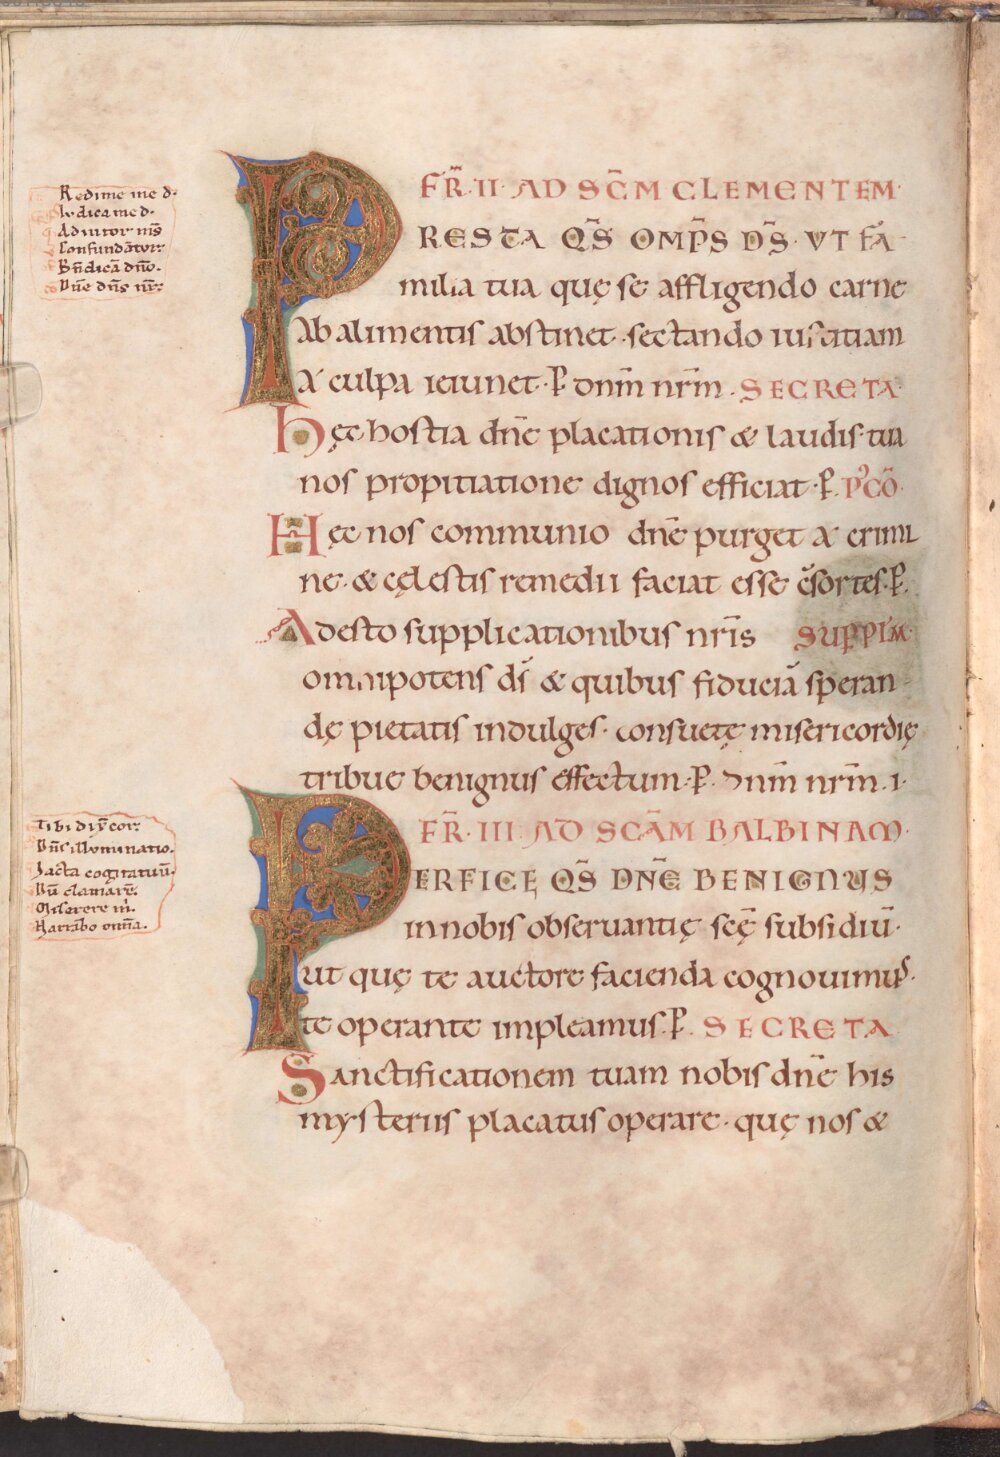 Redime me d·
Iudica me d·
Adiutor nr̄s
Confundātur
Bn̄dicā dn̄o·
Dn̄e dn̄s nr̄
FR̄· II· AD SC̄M CLEMENTEM·
PRESTA QS̄ OMP̄S DS̄· VT FA-
milia tua quę se affligendo carne
Ab alimentis abstinet· sectando iusticiam
A culpa ieiunet· P̱ dnm̄ nrm̄· SECRETA·
Hęc hostia dn̄e placationis & laudis· tua
nos propitiatione dignos efficiat· P̱. P̓CŌ·
Hęc nos communio dn̄e purget A crimi
ne· & cęlestis remedii faciat esse c̄sortes· P̱.
Adesto supplicationibus nrīs SUPP̱ IM̄·
omnipotens ds̄ & quibus fiduciā speran-
dę pietatis indulges· consuetę misericordię
tribue benignus effectum· P̱. dnm̄ nrm̄· i·
FR̄· III· AD SCĀM BALBINAM·
Tibi dix̄ cor·
Dn̄s illuminatio·
Iacta cogitatuū·
Dū clamarē·
Miserere m̄·
Narrabo om̄a·
PERFICE QS̄ DN̄E BENIGNUS
in nobis observantię scę̄ subsidiū·
ut quę te auctore facienda cognovimus·
te operante impleamus· P̱. SECRETA
Sanctificationem tuam nobis dn̄e his
mysteriis placatus operare· quę nos &